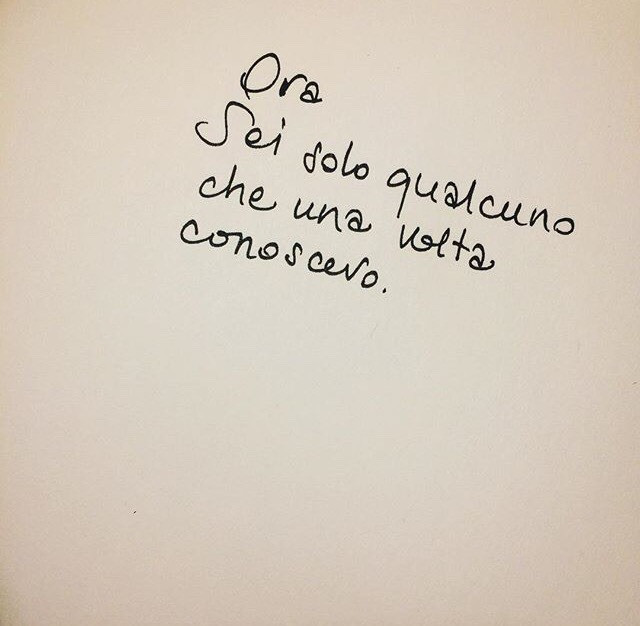 Ora
Sei solo qualcuno
che una volta
conoscevo.